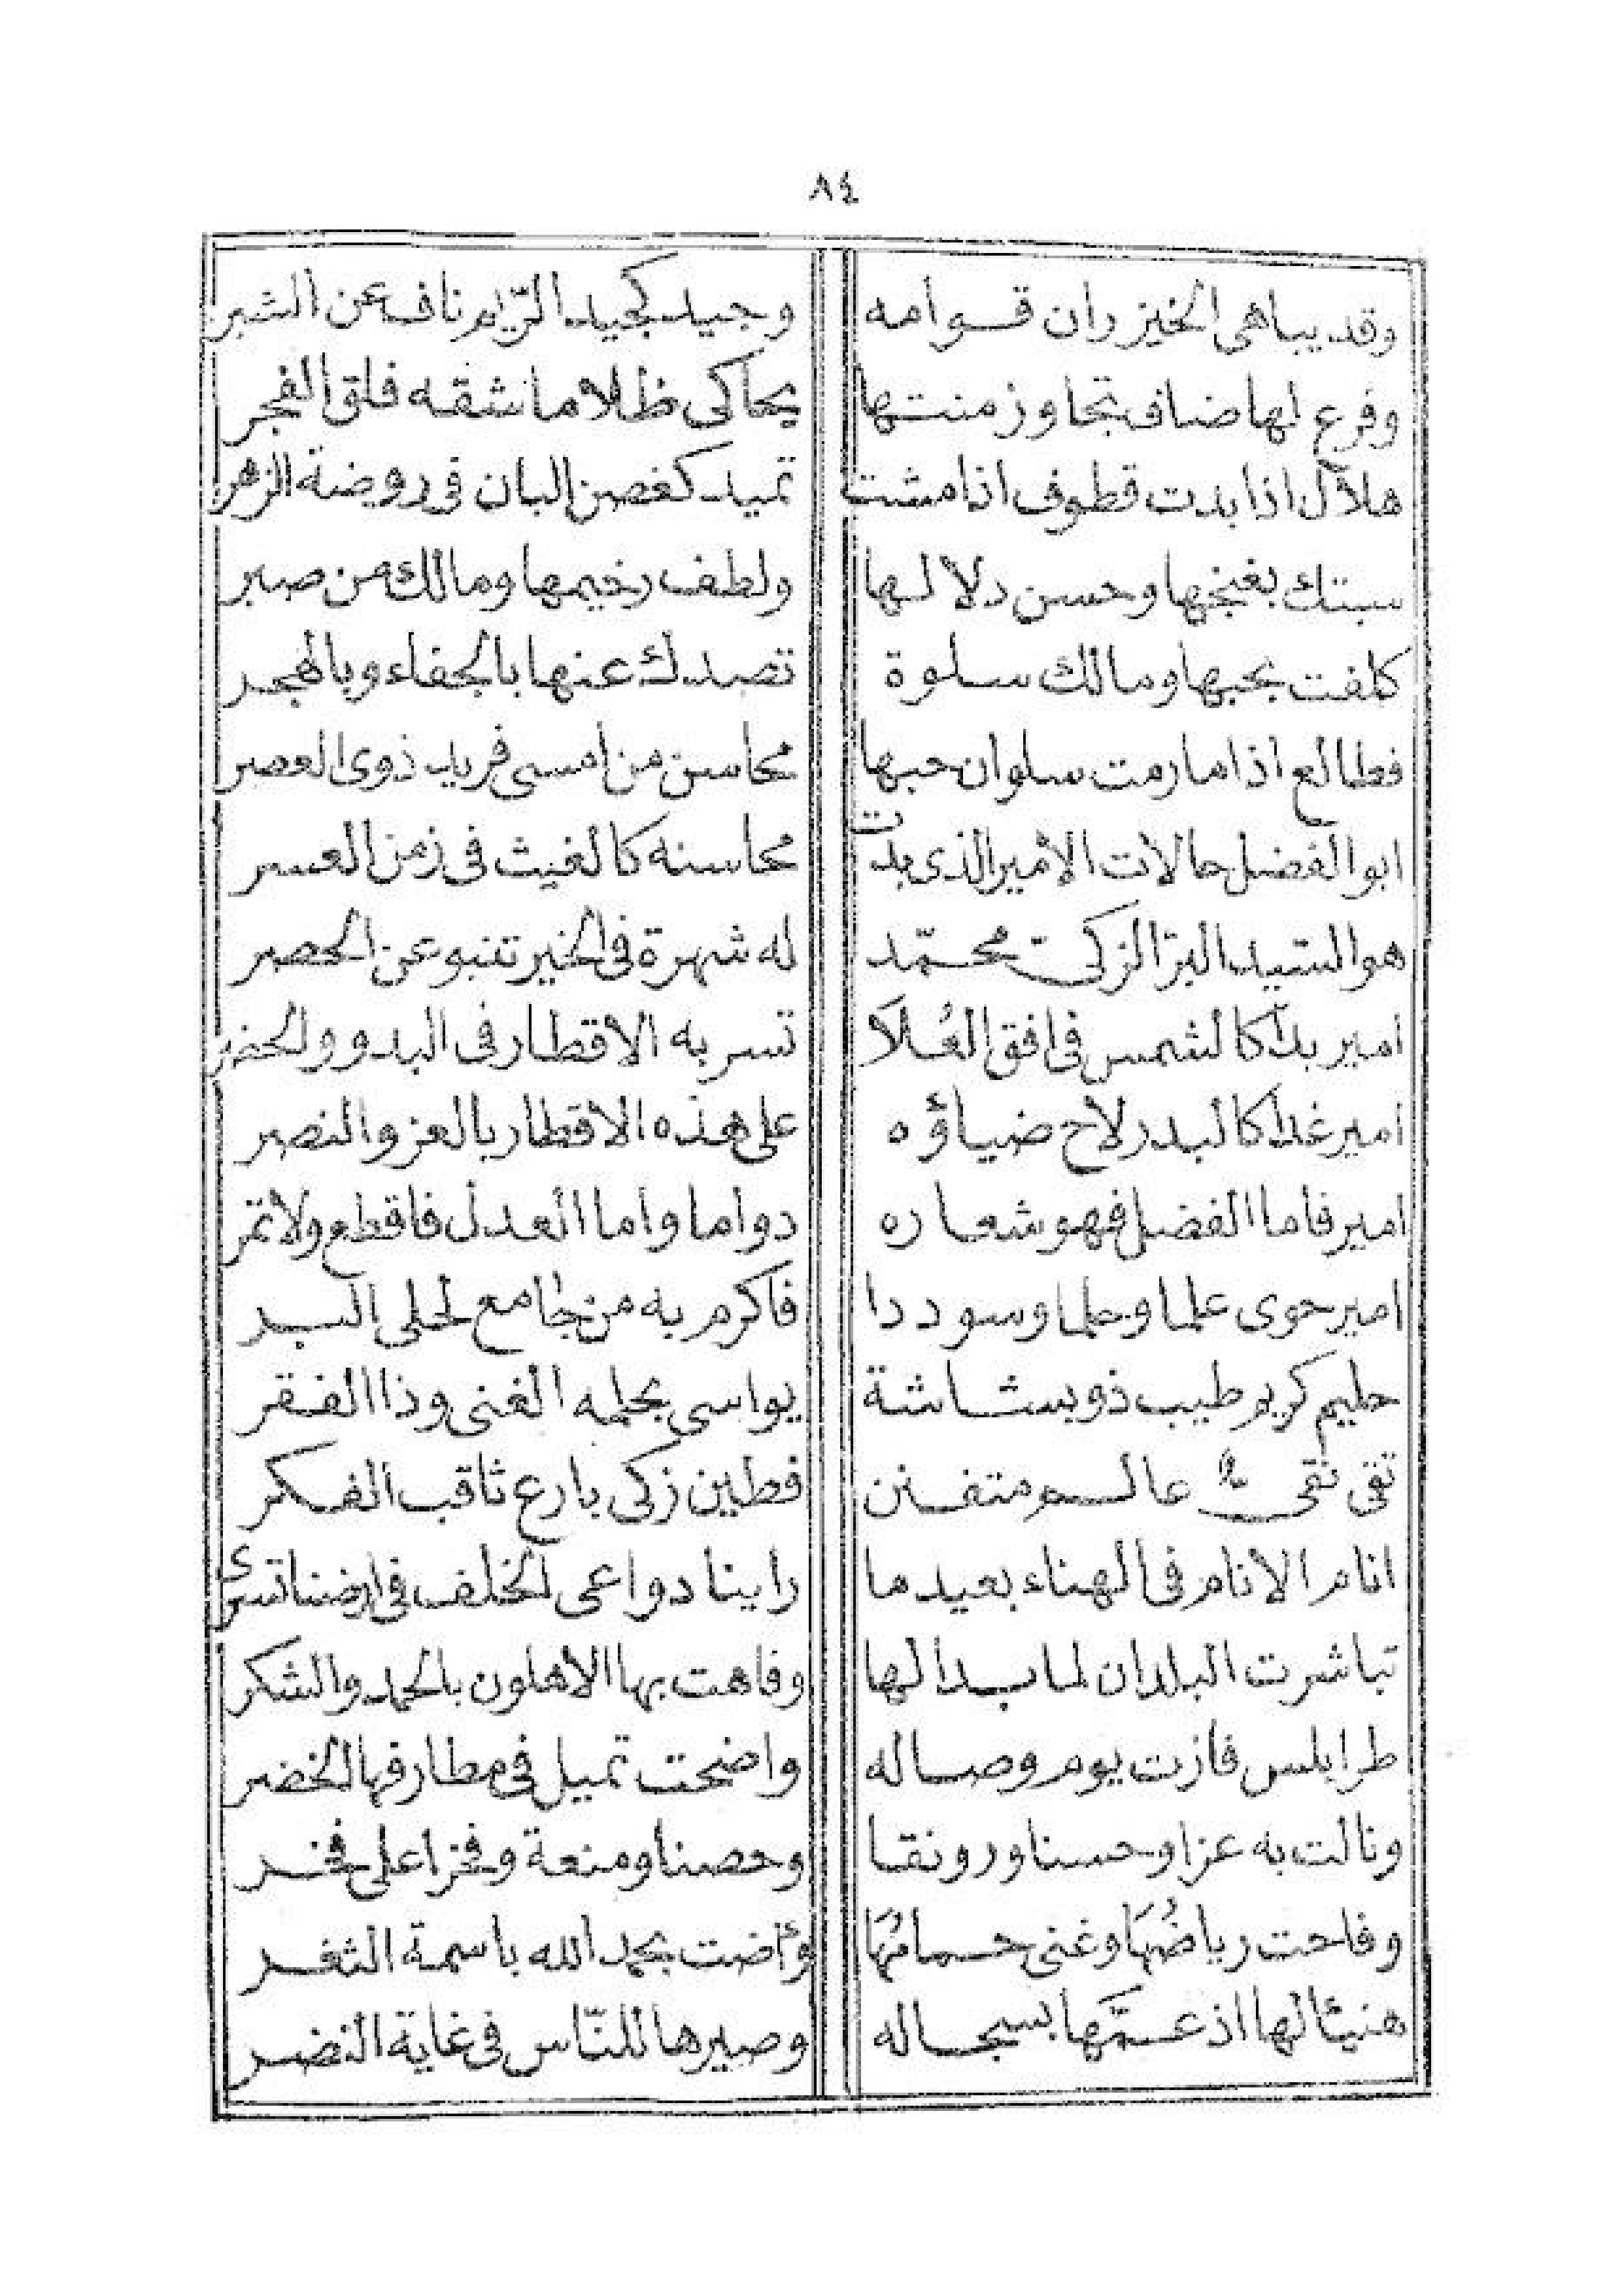 ٨٤
وقد يباهى الخيزران قوامه وجيد كجيد الريم ناف عن الشبر
وفرع لها ضاف تجاوز منتها يحاكى ظلاما شقه فلق الفجر
هلال اذا بدت قطوف اذا مشت تميد كغصن البان فى روضة الزهر
سبتك بغنجها وحسن دلالها ولطف رخيمها ومالك من صبر
كلفت بحبها ومالك سلوة تصدك عنها بالجفاء وبالهجر
فطالع اذا ما رمت سلوان حبها محاسن من امسى فريد ذوى العصر
ابو الفضل حالات الامير الذى بدت محاسنه كالغيث فى زمن العسر
هو السيد البر الزكىّ محمّد له شهرة فى الخير تنبو عن الحصر
امير بدا كالشمس فى افق العُلاَ تسر به الاقطار فى البدو والحضر
امير غدا كالبدر لاح ضياؤه على هذه الاقطار بالعز والنصر
امير فاما الفضل فهو شعاره دواما واما العدل فاقطع ولا تمر
امير حوى علما وحلما وسوددا فاكرم به من جامع لحلى البر
حليم كريم طيب ذو بشاشة يواسى بحلمه الغنى وذا الفقر
تقى نقىٌّ عالم متفنن فطين زكى بارع ثاقب الفكر
انام الانام فى الهناء بعيد ما راينا دواعى الخلف فى ارضنا تسرى
تباشرت البلدان لما بدا لها وفاهت بها الاهلون بالحمد والشكر
طرابلس فازت يوم وصاله واضحت تميل فى مطارفها الخضر
ونالت به عزا وحسنا ورونقا وحصنا ومنعة وفخرا على فخر
وفاحت رياضُهَا وغنى حمامُهَا وأضت بحمد الله باسمة الثغر
هنيئا لها اذ عمَّها بسجاله وصيرها للنّاس فى غاية النضر